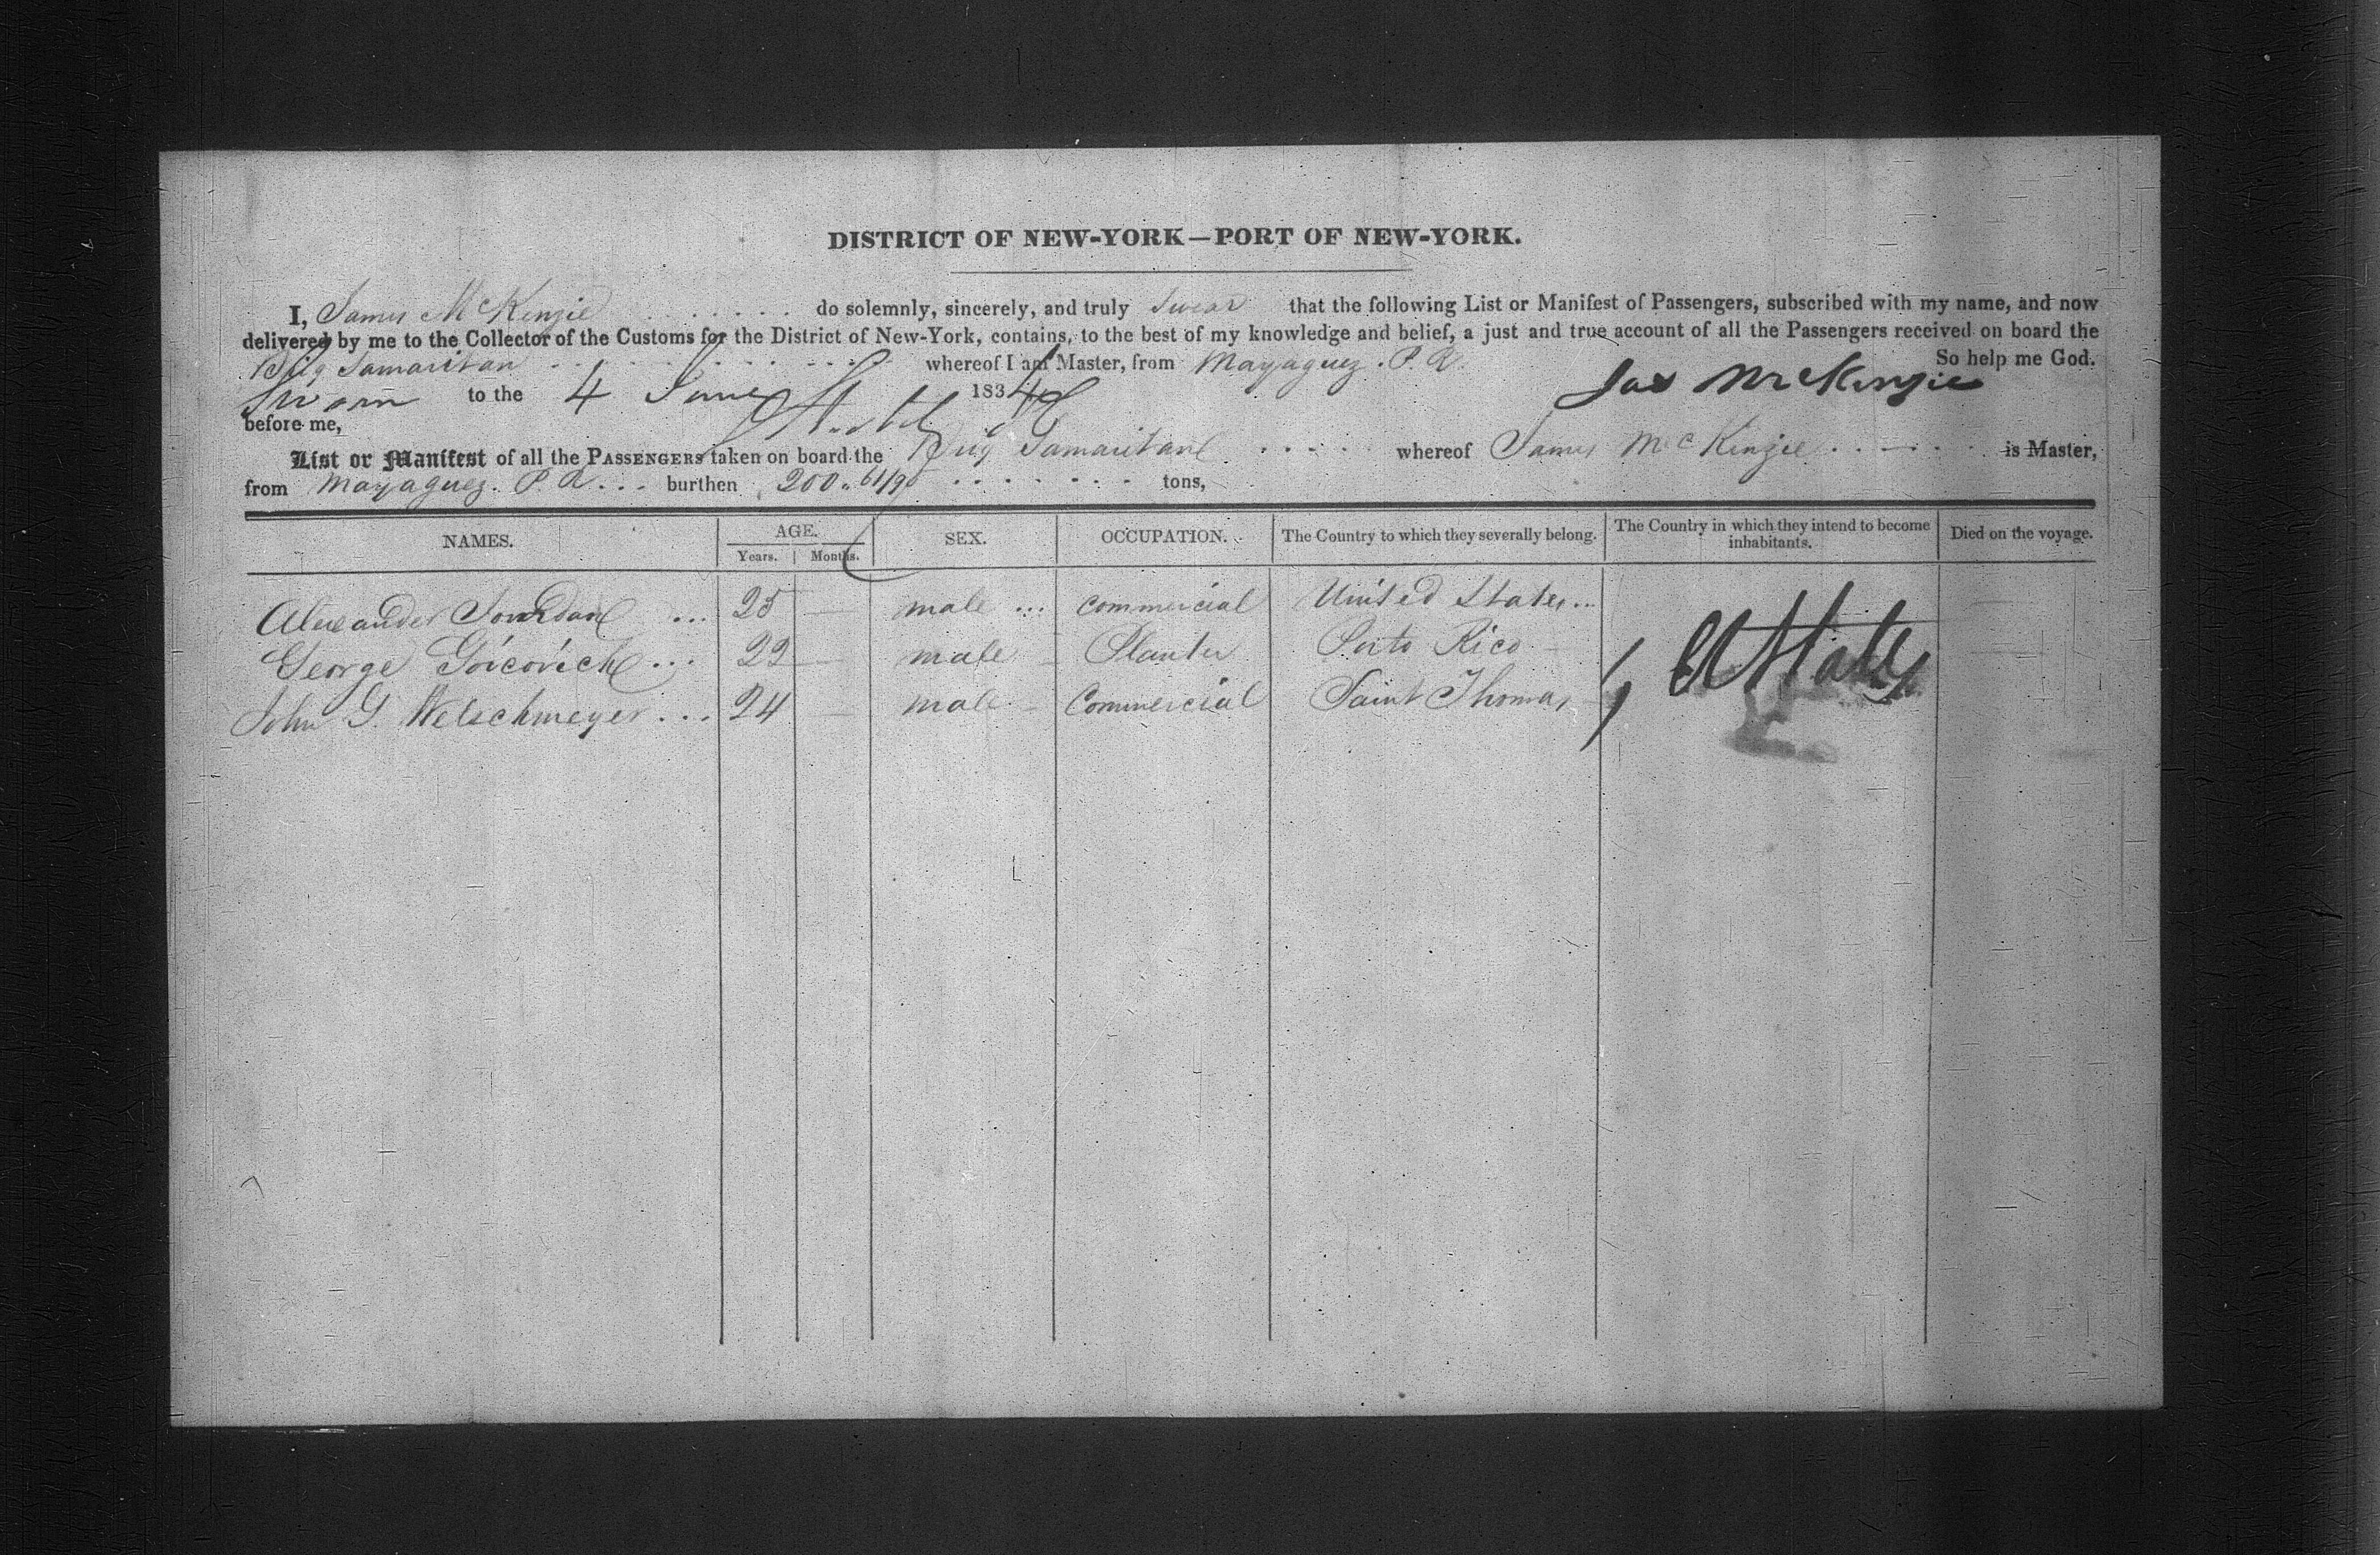 DISTRICT OF NEW-YORK—PORT OF NEW-YORK.
I, James McKenzie do solemnly, sincerely, and truly swear that the following List or Manifest of Passengers, subscribed with my name, and now
delivered by me to the Collector of the Customs for the District of New-York, contains, to the best of my knowledge and belief, a just and true account of all the Passengers received on board the
Brig Samaritan whereof I am Master, from Mayaguez. P. R. So help me God.
Sworn to the 4 June 1834 Jas McKenzie
before me,
List or Manifest of all the PASSENGERS taken on board the Brig Samaritan whereof James McKenzie is Master,
from Mayaguez. P. R... burthen 200 61/95 tons,
NAMES. AGE. SEX. OCCUPATION. The Country to which they severally belong. The Country in which they intend to become inhabitants. Died on the voyage.
Years. Months.
Alexander Jourdan ... 25 — male ... Commercial United States...
George Goicovich ... 22 — male Planter Porto Rico U States
John G. Welschmeyer ... 24 — male Commercial Saint Thomas